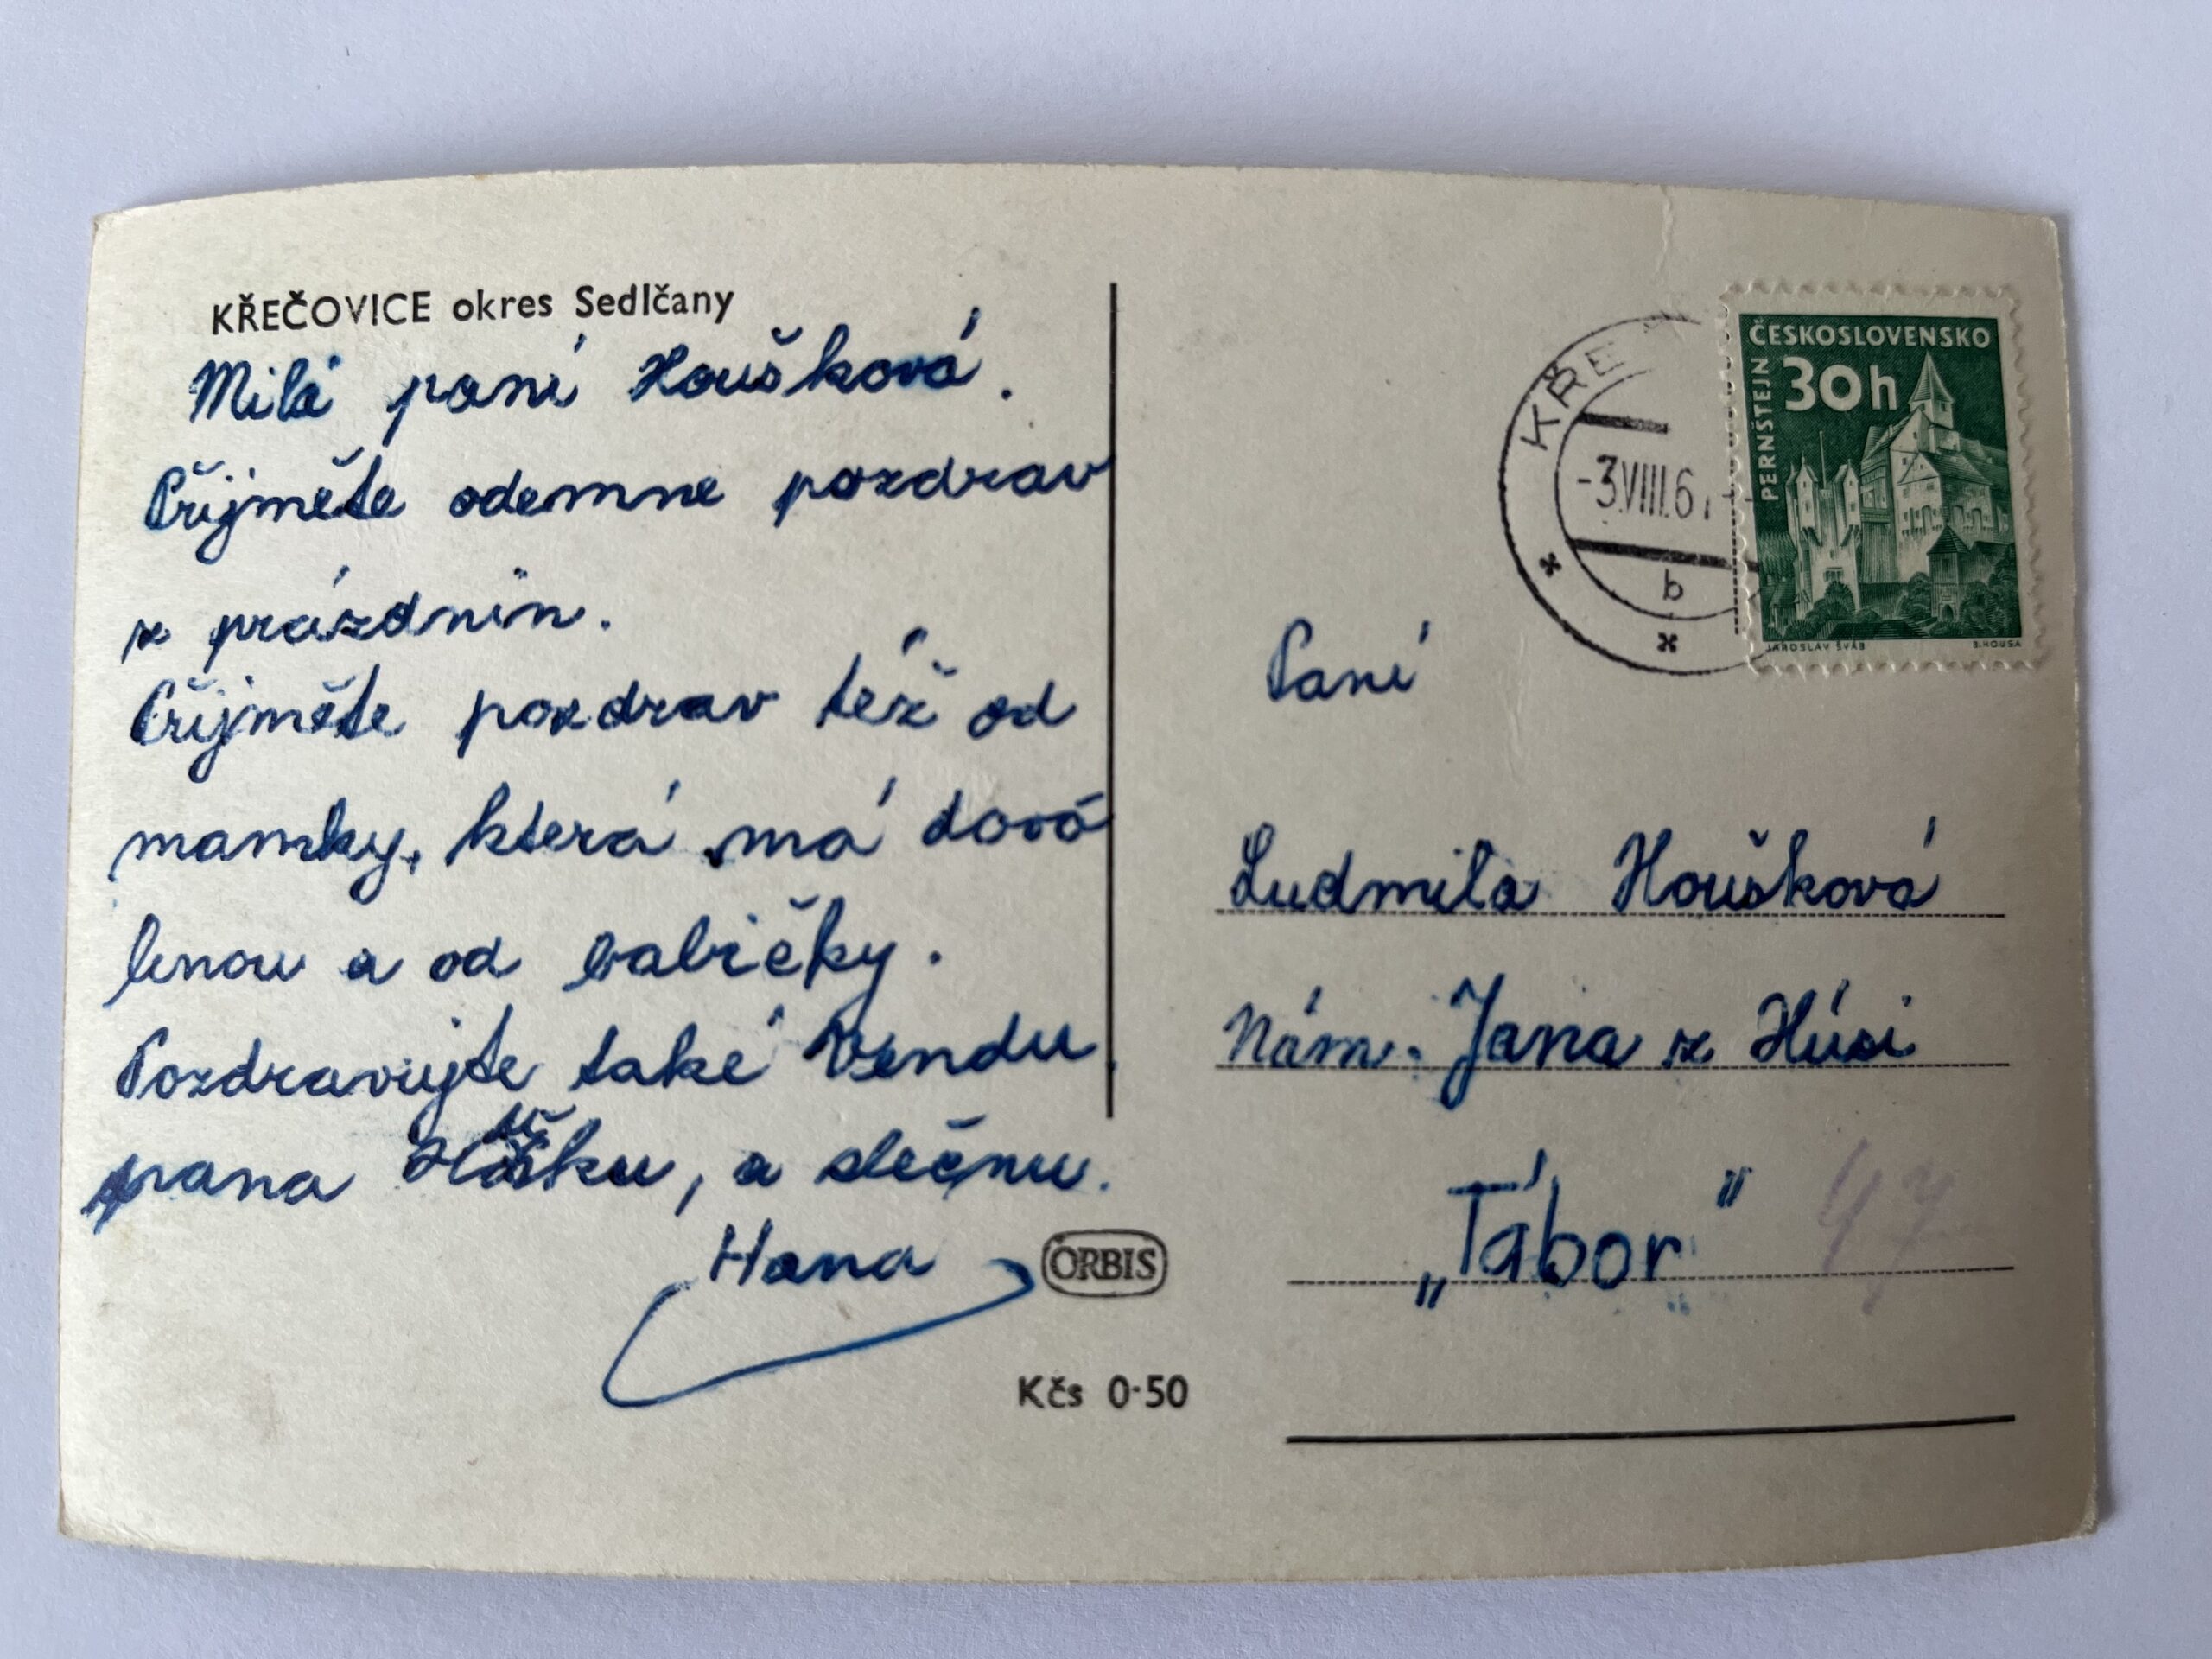 KŘEČOVICE okres Sedlčany
Milá paní Houšková.
Přijměte odemne pozdrav
z prázdnin.
Přijměte pozdrav též od
mamky, která má dovo
lenou a od babičky.
Pozdravujte také Vendu
pana Houšku, a slečnu.
Hana
ORBIS
Kčs 0·50
KŘE
-3.VIII.61
b
ČESKOSLOVENSKO
30h
PERNŠTEJN
JAROSLAV ŠVÁB
B. HOUSA
Paní
Ludmila Houšková
Nám. Jana z Húsi
„Tábor"
47